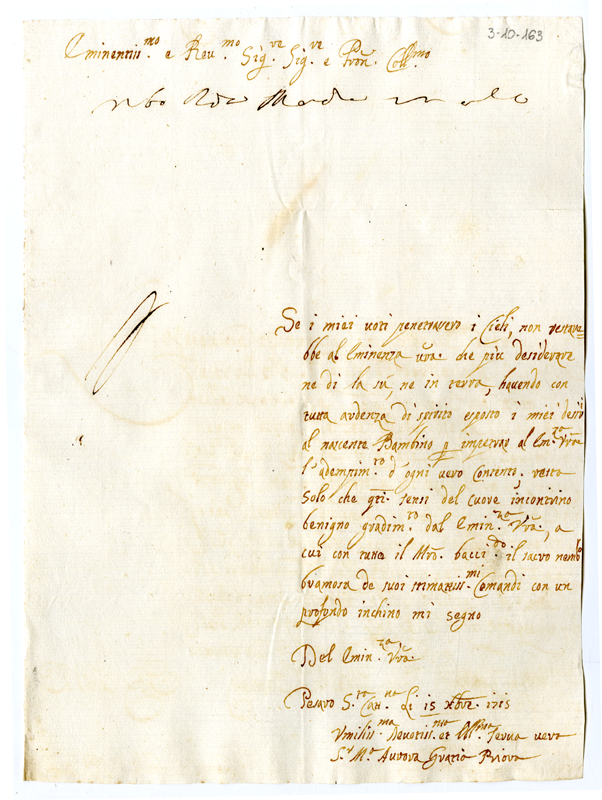 3-10-163
Eminentiss.mo e Reu.mo Sig.re Sig.re e Pron. Coll.mo
Se i miei uoti penetrarero i Cieli, non restare=
bbe al Eminenza Vra. che più desiderare
ne di la sù, ne in terra, hauendo con
tutta ardenza di spirito esposto i miei desirj
al nascente Bambino p impetrar al Em.za Vra
l'adempim.to d'ogni uero Contento, resta
Solo che qti. sensi del cuore incontrino
benigno gradim.to dal Emin.za Vra., a
cui con tutto il Mro. bacci.do il sacro nembo
bramosa de suoi stimatiss.mi Comandi con un
profondo inchino mi segno
Del Emin.za Vra.
Pesaro S.ta Catt.na Li 15 Xbre. 1715
Vmiliss.ma Deuotiss.ma et Obl.ma Serua uera
S.r M.a Aurora Gratia Priora